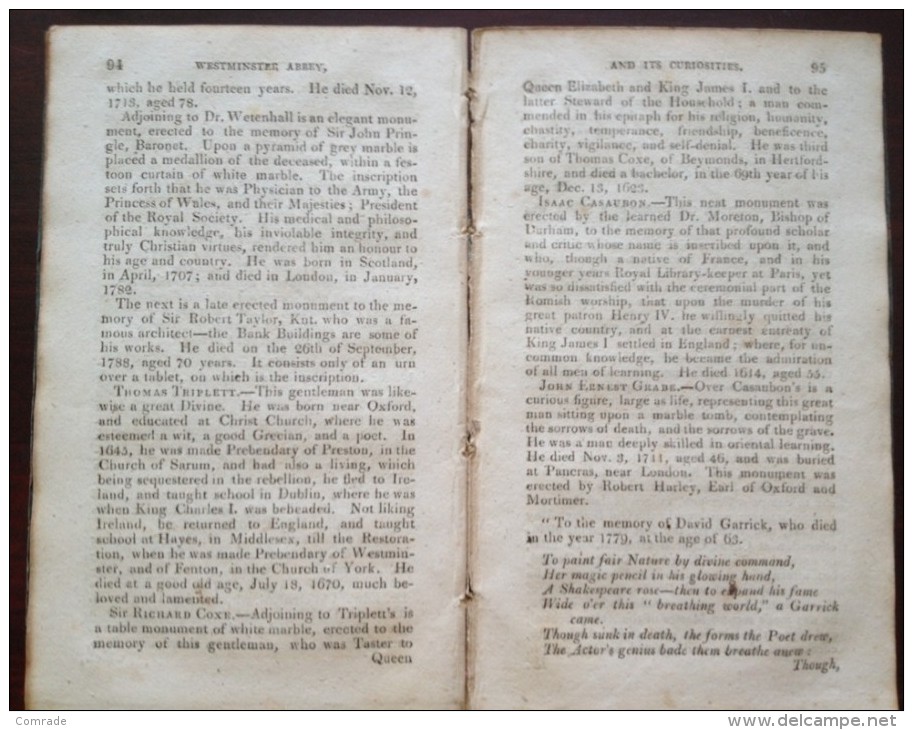 94 WESTMINSTER ABBEY,
which he held fourteen years. He died Nov. 12,
1713, aged 78.
Adjoining to Dr. Wetenhall is an elegant monu-
ment, erected to the memory of Sir John Prin-
gle, Baronet. Upon a pyramid of grey marble is
placed a medallion of the deceased, within a fes-
toon curtain of white marble. The inscription
sets forth that he was Physician to the Army, the
Princess of Wales, and their Majesties; President
of the Royal Society. His medical and philoso-
phical knowledge, his inviolable integrity, and
truly Christian virtues, rendered him an honour to
his age and country. He was born in Scotland,
in April, 1707; and died in London, in January,
1782.
The next is a late erected monument to the me-
mory of Sir Robert Taylor, Knt. who was a fa-
mous architect—the Bank Buildings are some of
his works. He died on the 26th of September,
1788, aged 70 years. It consists only of an urn
over a tablet, on which is the inscription.
THOMAS TRIPLETT.—This gentleman was like-
wise a great Divine. He was born near Oxford,
and educated at Christ Church, where he was
esteemed a wit, a good Grecian, and a poet. In
1645, he was made Prebendary of Preston, in the
Church of Sarum, and had also a living, which
being sequestered in the rebellion, he fled to Ire-
land, and taught school in Dublin, where he was
when King Charles I. was beheaded. Not liking
Ireland, he returned to England, and taught
school at Hayes, in Middlesex, till the Restora-
tion, when he was made Prebendary of Westmin-
ster, and of Fenton, in the Church of York. He
died at a good old age, July 18, 1670, much be-
loved and lamented.
SIR RICHARD COXE.—Adjoining to Triplett's is
a table monument of white marble, erected to the
memory of this gentleman, who was Taster to
Queen
AND ITS CURIOSITIES. 95
Queen Elizabeth and King James I. and to the
latter Steward of the Household; a man com-
mended in his epitaph for his religion, humanity,
chastity, temperance, friendship, beneficence,
charity, vigilance, and self-denial. He was third
son of Thomas Coxe, of Beymonds, in Hertford-
shire, and died a bachelor, in the 69th year of his
age, Dec. 13, 1623.
ISAAC CASAUBON.—This neat monument was
erected by the learned Dr. Moreton, Bishop of
Durham, to the memory of that profound scholar
and critic whose name is inscribed upon it, and
who, though a native of France, and in his
younger years Royal Library-keeper at Paris, yet
was so dissatisfied with the ceremonial part of the
Romish worship, that upon the murder of his
great patron Henry IV. he willingly quitted his
native country, and at the earnest entreaty of
King James I settled in England; where, for un-
common knowledge, he became the admiration
of all men of learning. He died 1614, aged 55.
JOHN ERNEST GRABE.—Over Casaubon's is a
curious figure, large as life, representing this great
man sitting upon a marble tomb, contemplating
the sorrows of death, and the sorrows of the grave.
He was a man deeply skilled in oriental learning.
He died Nov. 3, 1711, aged 46, and was buried
at Pancras, near London. This monument was
erected by Robert Harley, Earl of Oxford and
Mortimer.
"To the memory of David Garrick, who died
in the year 1779, at the age of 63.
To paint fair Nature by divine command,
Her magic pencil in his glowing hand,
A Shakespeare rose—then to expand his fame
Wide o'er this "breathing world," a Garrick
came.
Though sunk in death, the forms the Poet drew,
The Actor's genius bade them breathe anew:
Though,
Comrade
www.delcampe.net